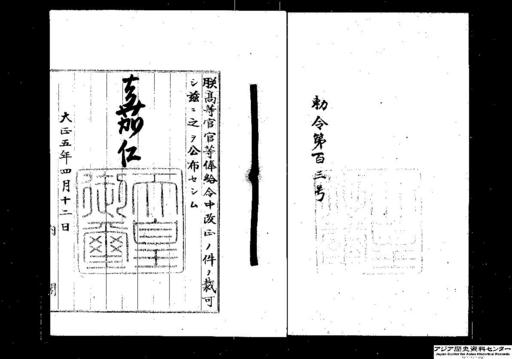 勅令第百三号
朕高等官官等俸給令中改正ノ件ヲ裁可
シ茲ニ之ヲ公布セシム
嘉仁
天皇御璽
大正五年四月十二日
内閣
アジア歴史資料センター
Japan Center for Asian Historical Records